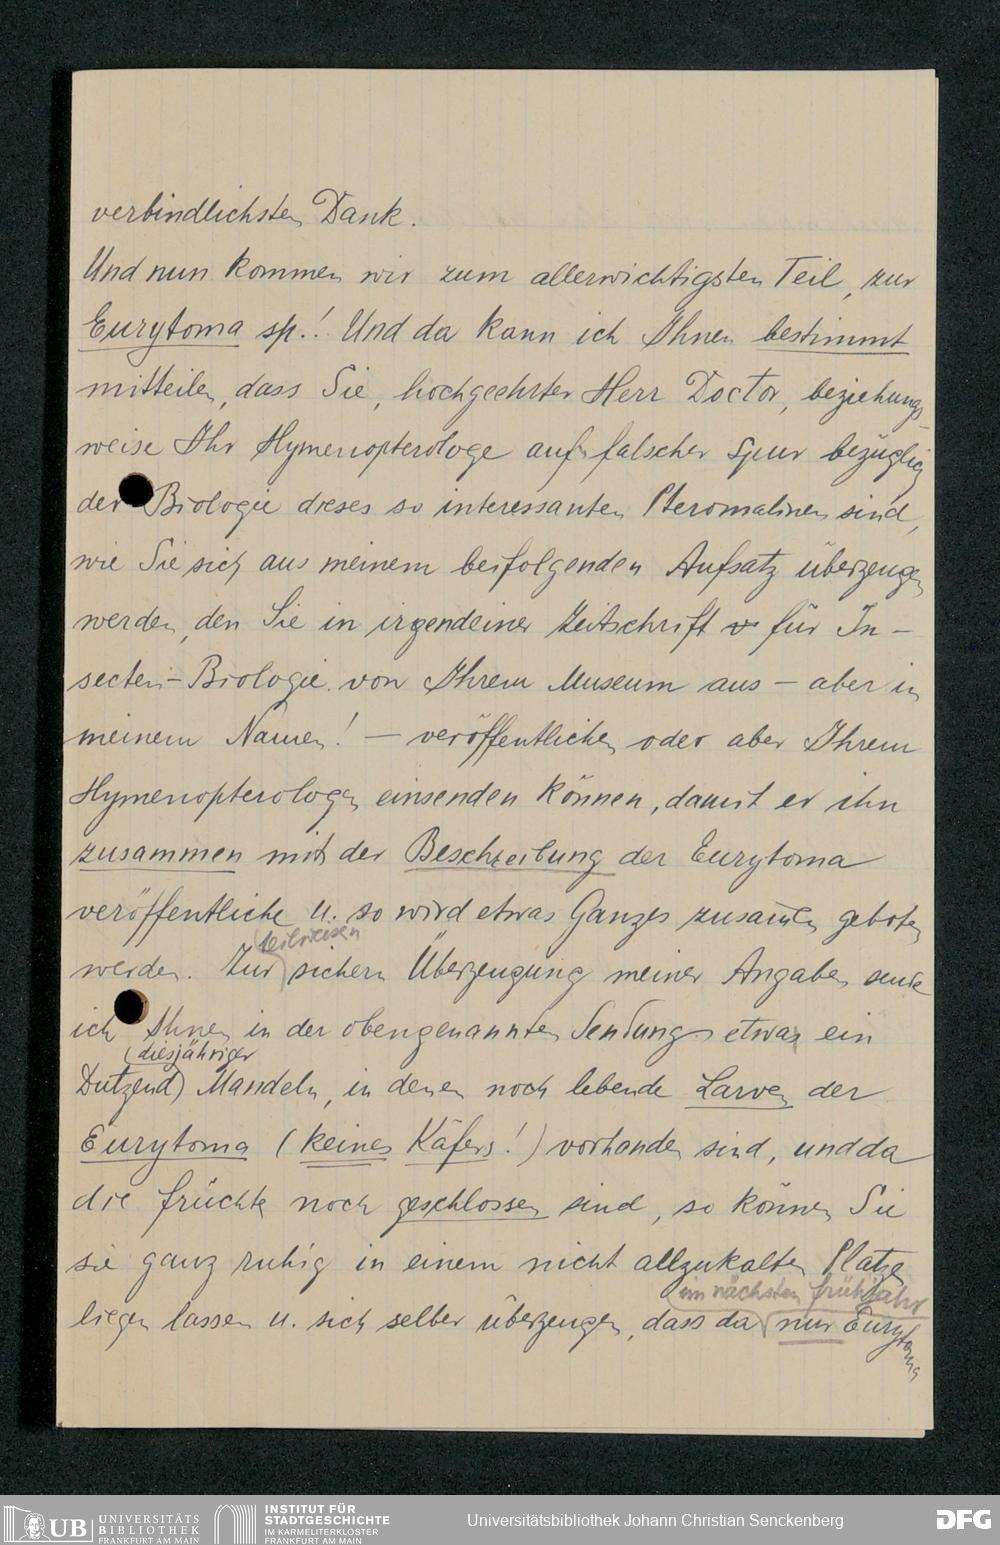 verbindlichsten Dank.
Und nun kommen wir zum allerwichtigsten Teil, zur
Eurytoma sp.! Und da kann ich Ihnen bestimmt
mitteilen, dass Sie, hochgeehrter Herr Doctor, beziehungs-
weise Ihr Hymenopterologe auf falscher Spur bezüglich
der Biologie dieses so interessanten Pteromalinen sind,
wie Sie sich aus meinem beifolgenden Aufsatz überzeugen
werden, den Sie in irgendeiner Zeitschrift für In-
secten-Biologie von Ihrem Museum aus – aber in
meinem Namen! – veröffentlichen oder aber Ihrem
Hymenopterologen einsenden können, damit er ihn
zusammen mit der Beschreibung der Eurytoma
veröffentliche u. so wird etwas Ganzes zusammen geboten
teilweisen
werden. Zur sichern Überzeugung meiner Angaben sende
ich Ihnen in der obengenannten Sendung etwas ein
(diesjähriger
Dutzend) Mandeln, in denen noch lebende Larven der
Eurytoma (keines Käfers!) vorhanden sind, und da
die Früchte noch geschlossen sind, so können Sie
sie ganz ruhig in einem nicht allzukalten Platze
im nächsten Frühjahr
liegen lassen u. sich selber überzeugen, dass da nur Eurytoma
UB UNIVERSITÄTS
BIBLIOTHEK
FRANKFURT AM MAIN
INSTITUT FÜR
STADTGESCHICHTE
IM KARMELITERKLOSTER
FRANKFURT AM MAIN
Universitätsbibliothek Johann Christian Senckenberg
DFG